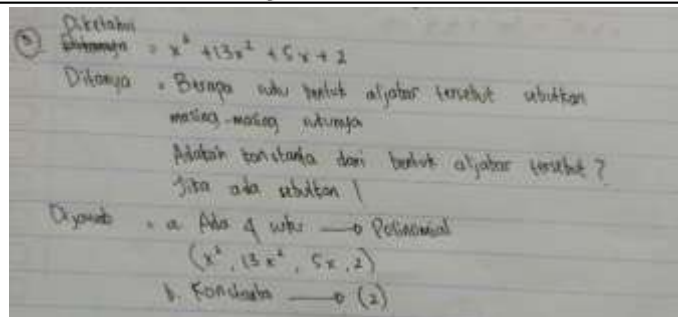 Diketahui
③ Ditanya = x³ + 13x² + 5x + 2
Ditanya = Berapa suku bentuk aljabar tersebut sebutkan
masing-masing sukunya
Adakah konstanta dari bentuk aljabar tersebut?
Jika ada sebutkan!
Dijawab = a. Ada 4 suku → Polinomial
(x³, 13x², 5x, 2)
b. Konstanta → (2)